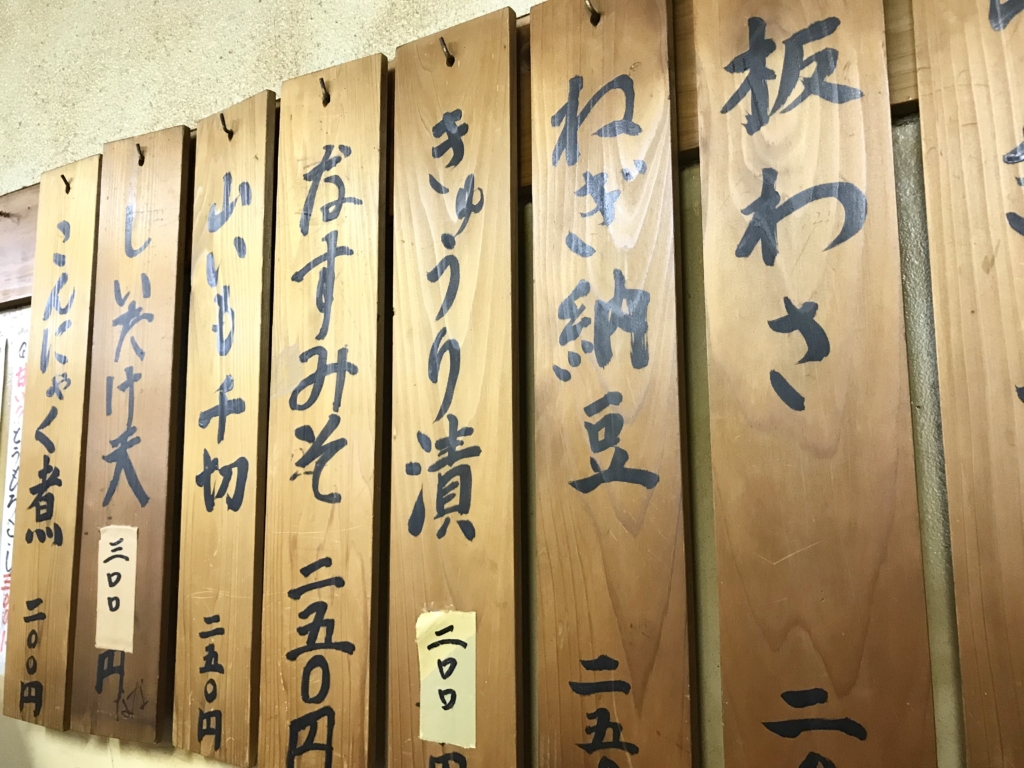 板わさ 二
ねぎ納豆 二五
きゅうり漬 二〇〇円
なすみそ 二五〇円
山いも千切 二五〇円
しいたけ天 三〇〇円
こんにゃく煮 二〇〇円